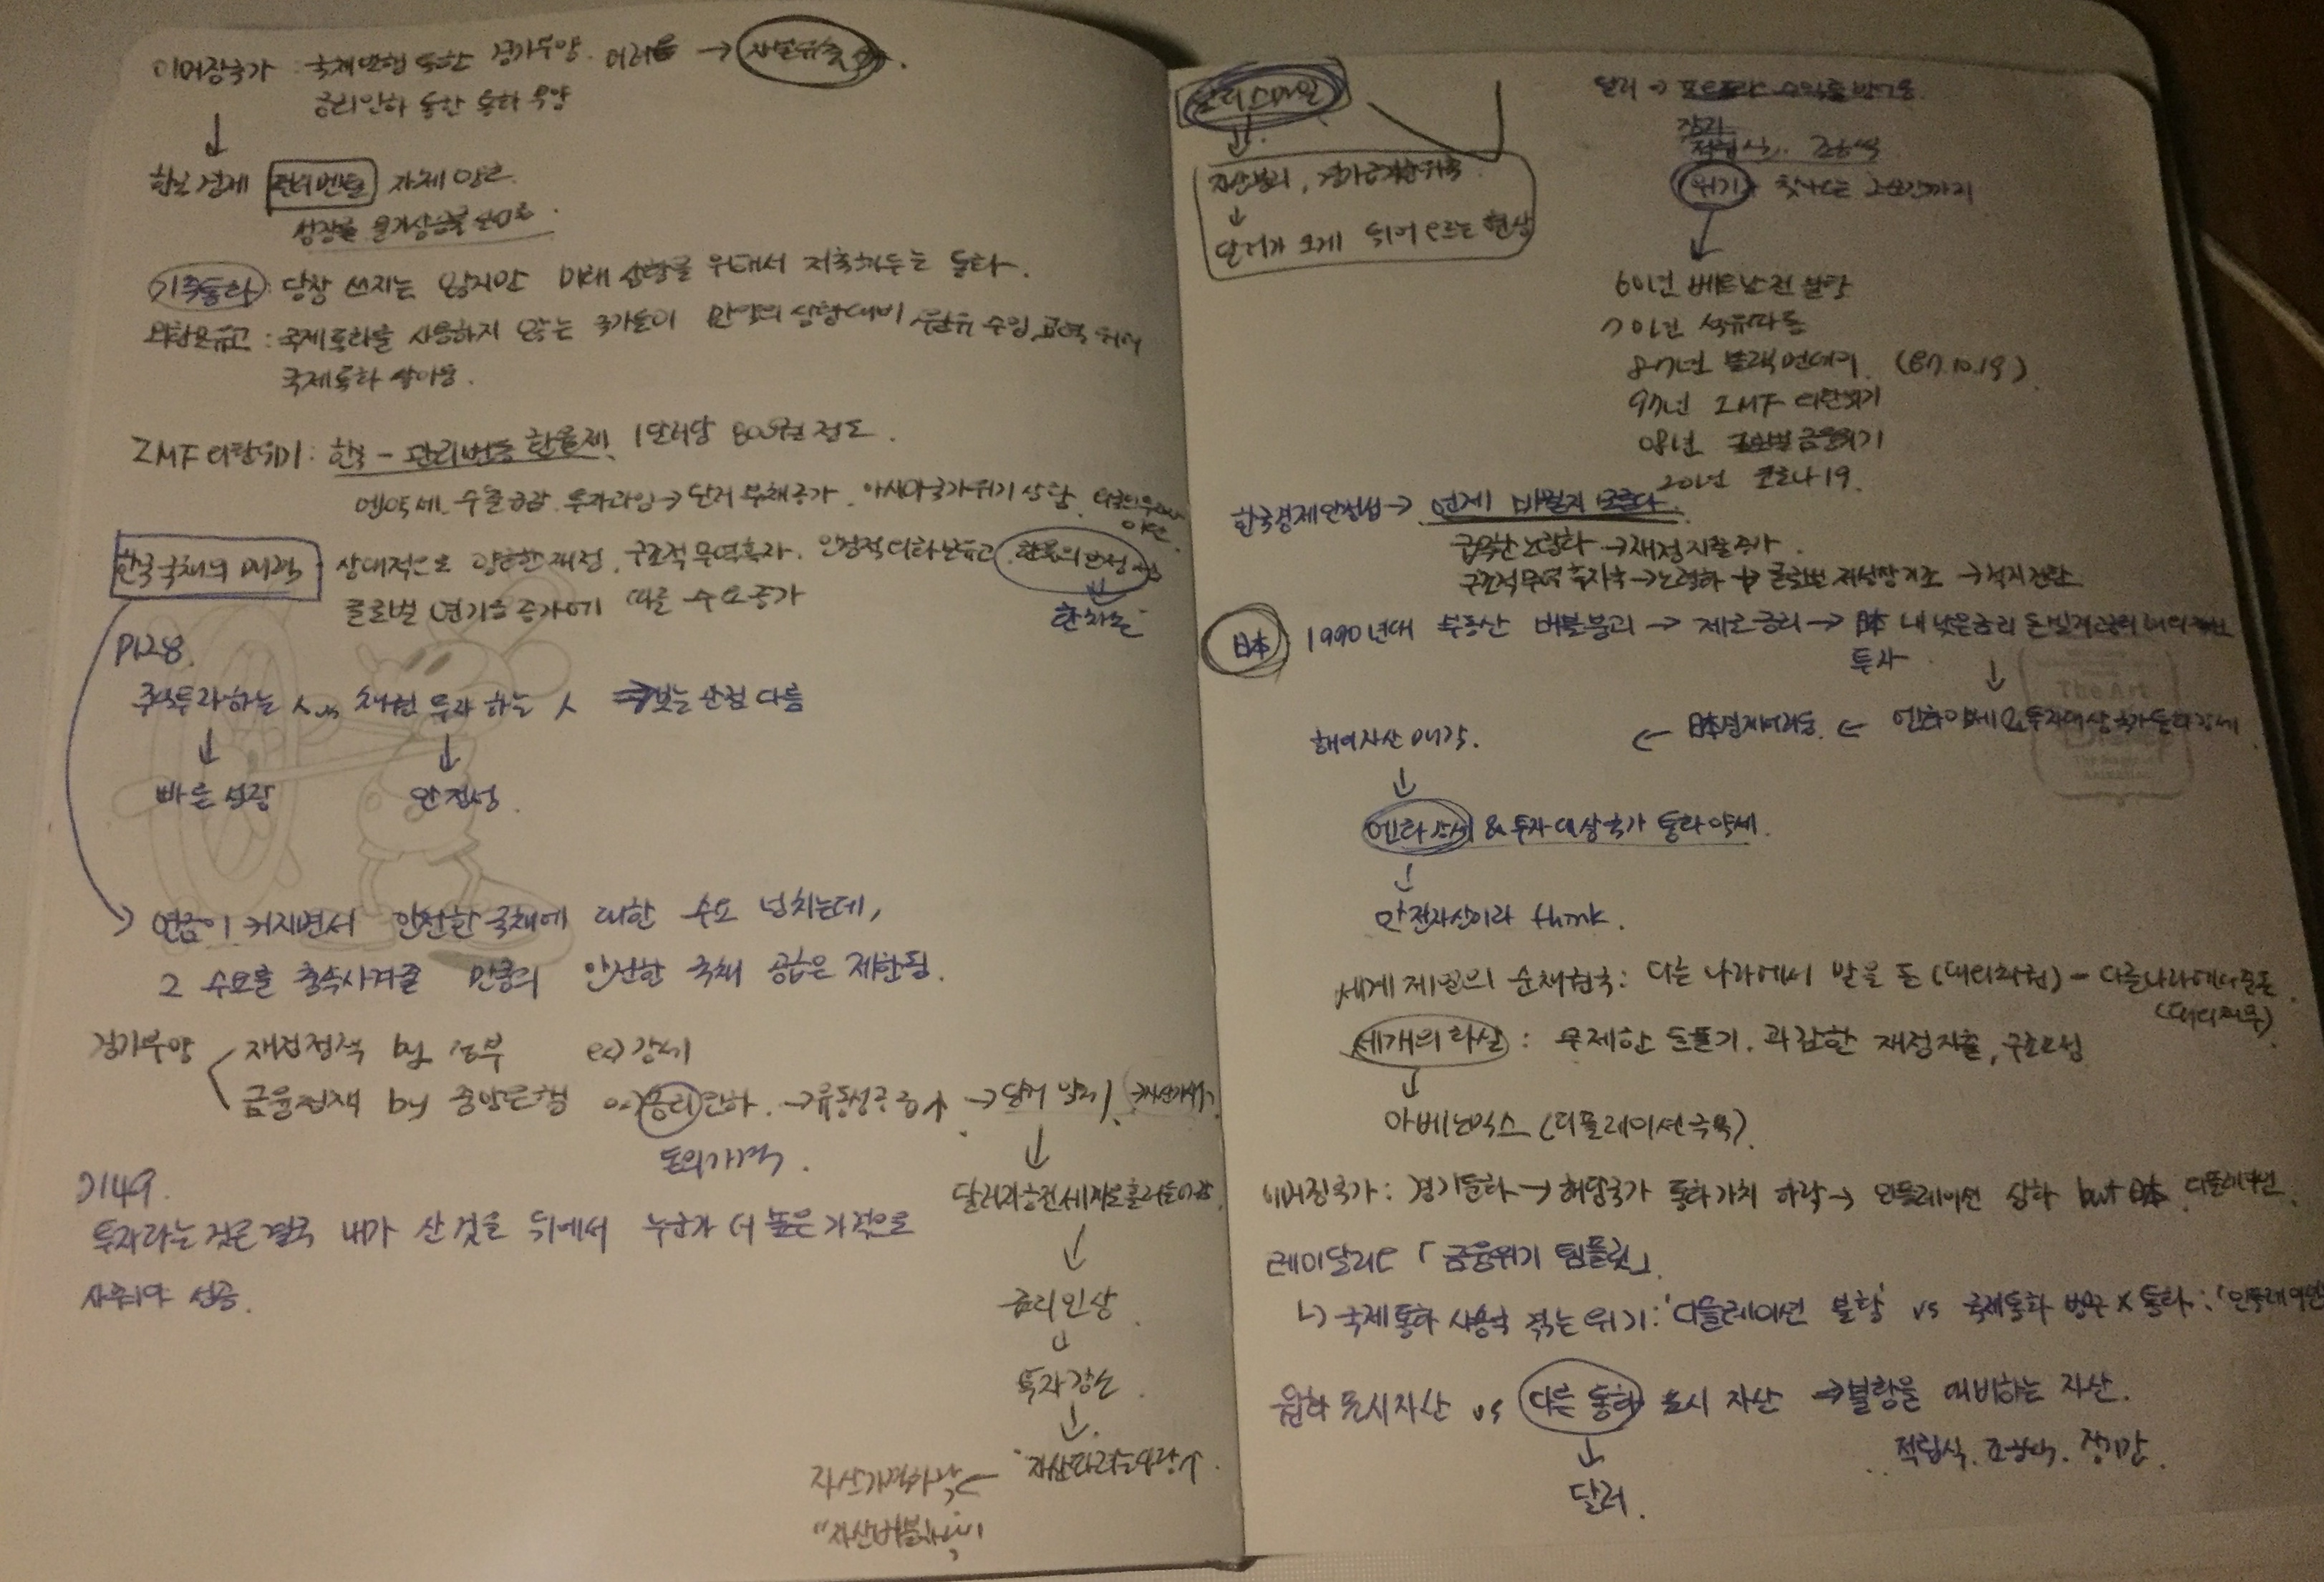 이머징국가 : 국채발행 통한 경기부양. 어려움 → 자본유출
금리인하 통한 통화 부양
↓
한국 경제 펀더멘털 자체 양호.
성장률 물가상승률
기축통화 : 당장 쓰지는 않지만 미래 상황을 위해서 저축해두는 통화.
외환보유고 : 국제통화를 사용하지 않는 국가들이 만약의 상황대비 수입
국제통화 쌓아둠.
IMF 외환위기 : 한국 - 관리변동 환율제. 1달러당 800원 정도.
엔약세. 수출급감. 투자과잉 → 단기 부채증가. 아시아국가위기 상황.
한국국채의 매력 상대적으로 양호한 재정. 구조적 무역흑자. 안정적 외환보유고. 환율의 안정
글로벌 연기금 증가에 따른 수요증가
P128.
주식투자하는 人 vs 채권 투자 하는 人 ⇒ 보는 관점 다름
↓ ↓
빠른 성장 안정성.
연금이 커지면서 안전한 국채에 대한 수요 넘치는데,
그 수요를 충족시켜줄 만큼의 안전한 국채 공급은 제한됨.
경기부양 재정정책 by 정부 ex) 감세
금융정책 by 중앙은행 ex) 금리인하. → 유동성공급↑ → 달러 약세
돈의가격.
↓
달러자금전세계로흘러들어감.
↓
금리인상
↓
투자감소.
↓
자산가격하락 ←
"자산버블
P149.
투자라는 것은 결국 내가 산 것을 뒤에서 누군가 더 높은 가격으로
사줘야 성공.
달러스마일
↓
자산분리, 경기
↓
달러가 크게 튀어오르는 현상
달러 →
장기
적립식.
위기 찾아오는 그 순간까지
↓
60년 베트남전 불황
70년 석유파동
87년 블랙먼데이. (87.10.19).
97년 IMF 외환위기
08년 글로벌금융위기
20년 코로나19.
한국경제안정성 → 언제 바뀔지 모른다.
급격한 노령화 → 재정지출증가.
구조적무역흑자국 → 노령화 + 글로벌 저성장기조 → 적자전환
日本 1990년대 부동산 버블붕괴 → 제로금리 → 日本 내 낮은금리 돈빌려
투자
↓
해외자산매각. ← 日本경제어려움. ← 엔화약세 & 투자대상국가통화강세
↓
엔화강세 & 투자대상국가 통화약세.
↓
안전자산이라 think.
세계제일의 순채권국 : 다른 나라에서 받을 돈 (대외채권) - 다른나라에 줄 돈.
(대외채무)
세개의 화살 : 무제한 돈풀기. 과감한 재정지출, 구조조정
↓
아베노믹스 (디플레이션극복)
이머징국가 : 경기둔화 → 해당국가 통화가치 하락 → 인플레이션 심화 but 日本 디플레이션.
레이달리오 「금융위기 템플릿」
↳ 국제통화 사용국 겪는 위기 : '디플레이션 불황' vs 국제통화 X 통화 : '인플레이션
원화표시자산 vs 다른 통화 표시 자산 ⇒ 불황을 대비하는 자산.
↓
적립식. 장기간.
달러.
The Art